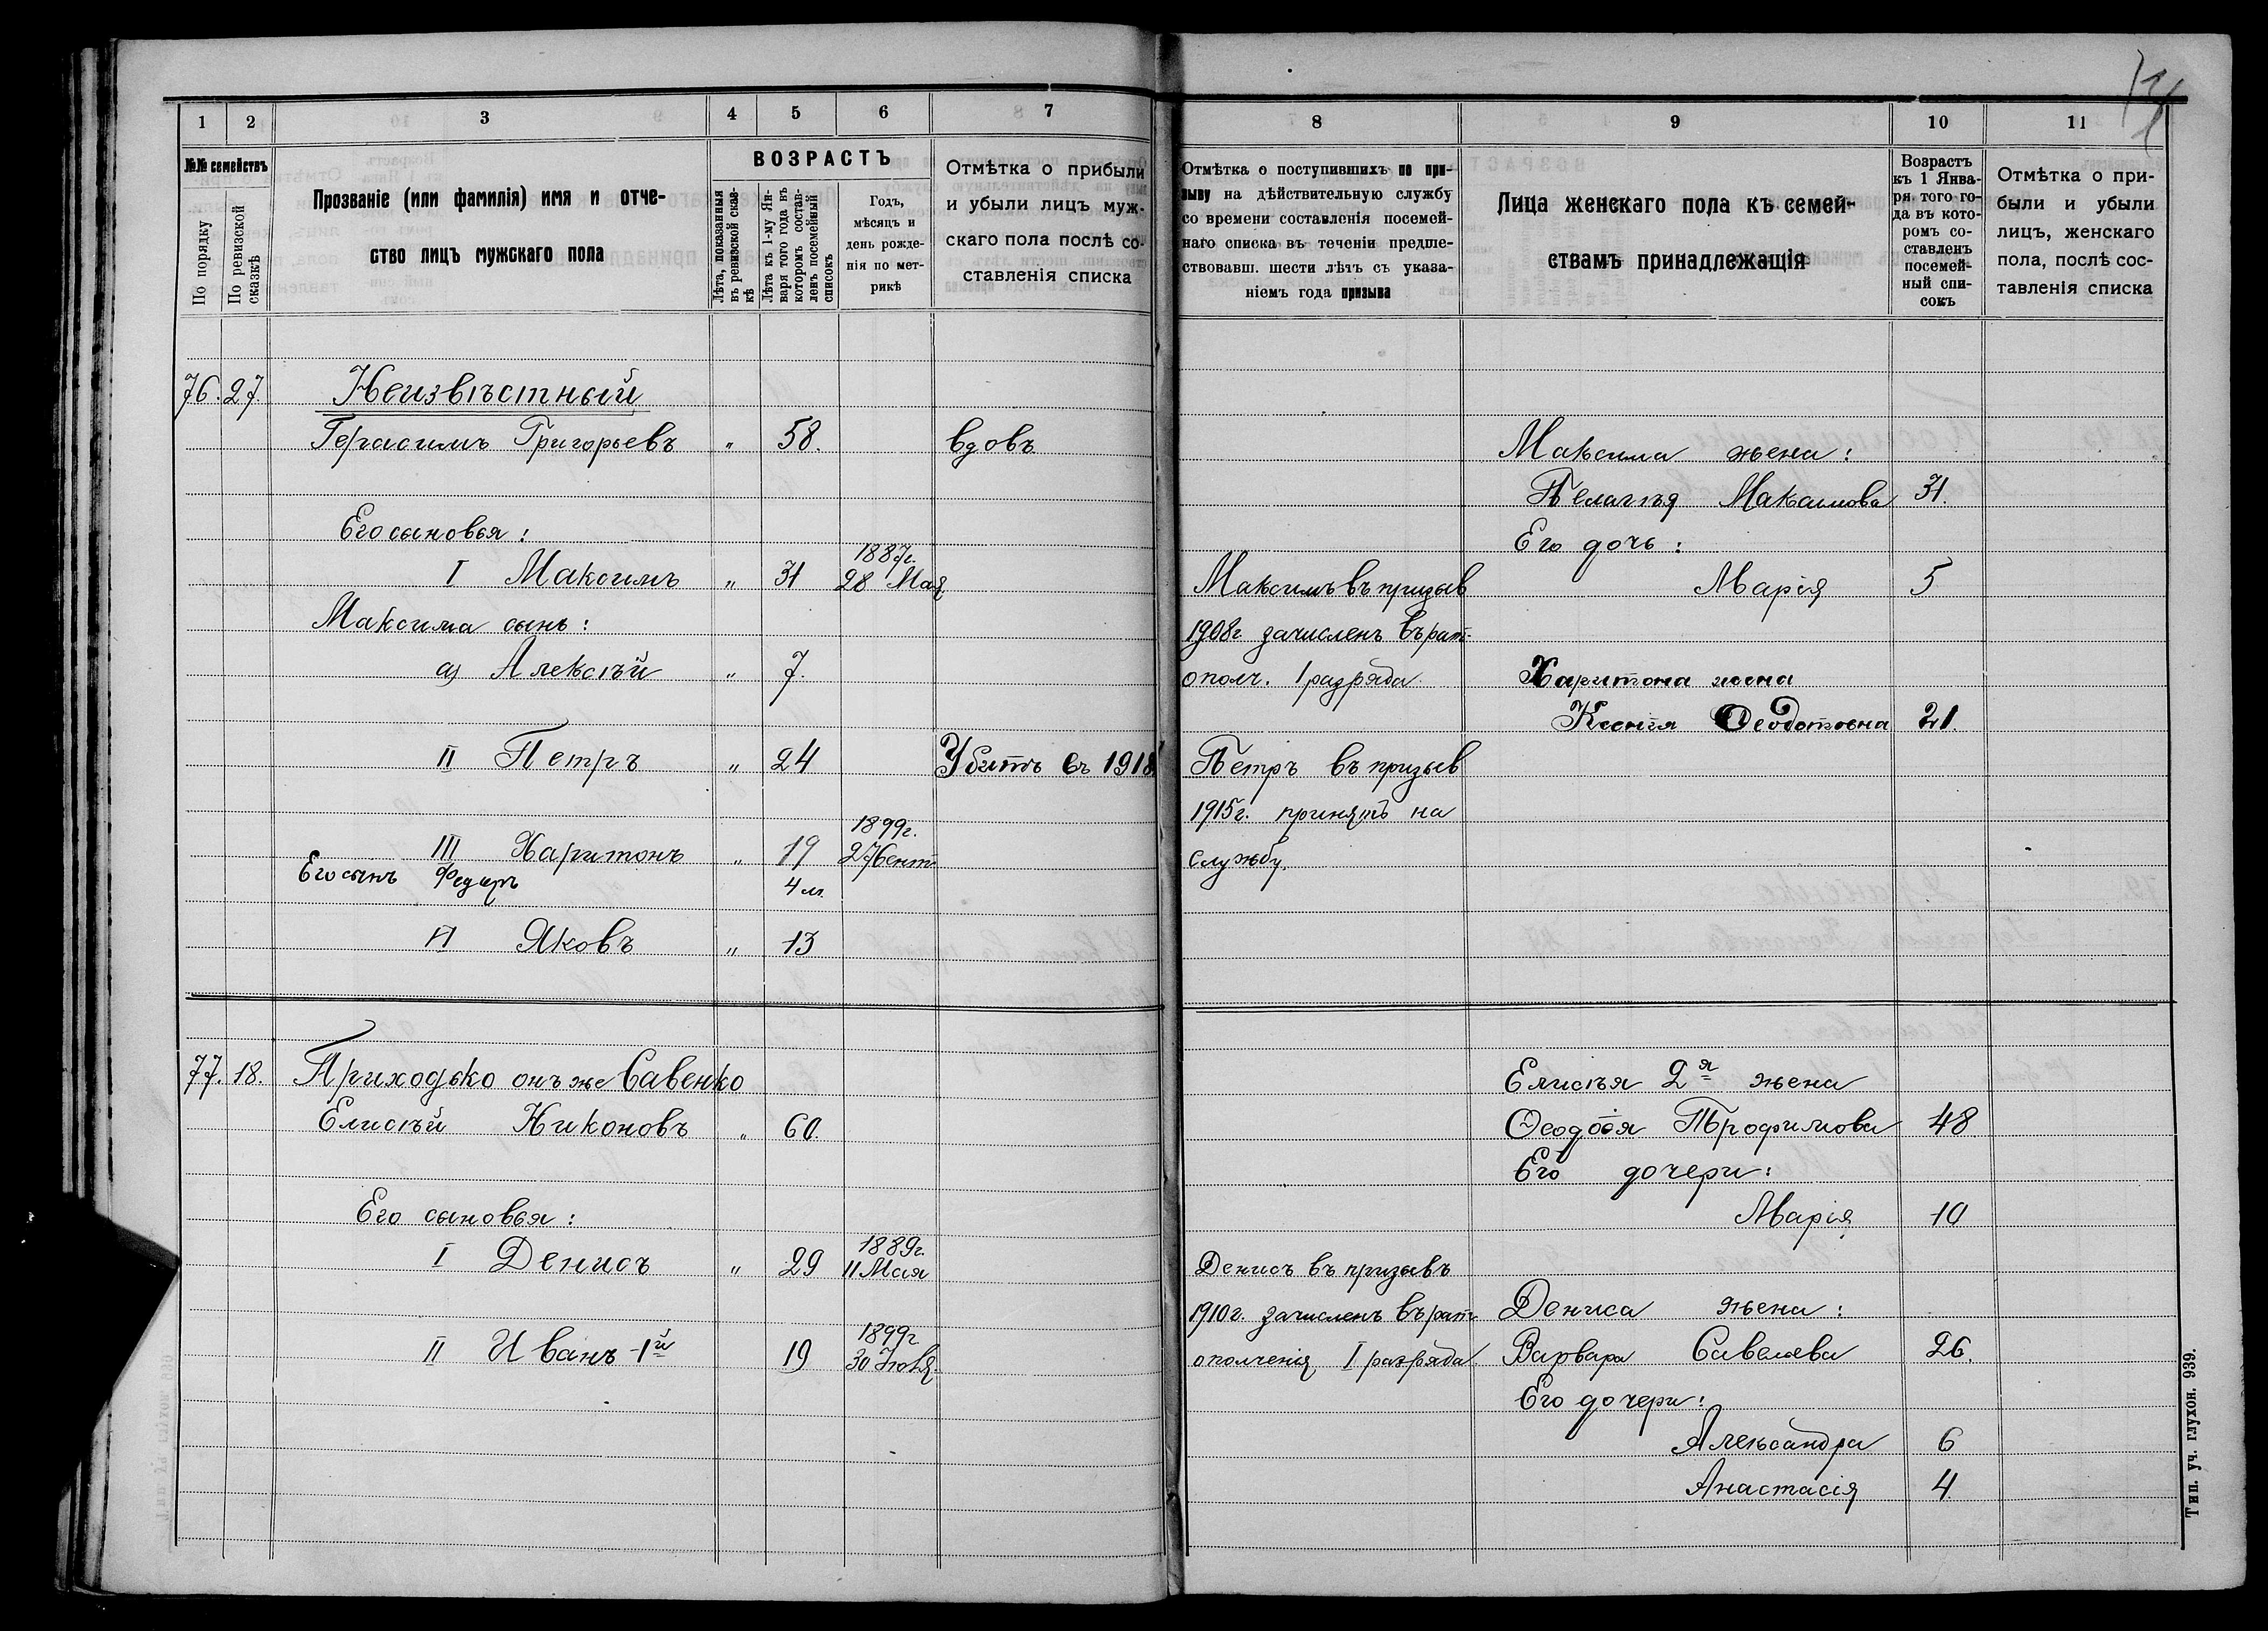 1
2
3
4
5
6
7
№№ семействъ
По порядку
По ревизской сказкѣ
Прозваніе (или фамилія) имя и отче-
ство лицъ мужскаго пола
ВОЗРАСТЪ
Лѣта, показанныя въ ревизской сказ-кѣ
Лѣта къ 1-му Ян-варя того года въ которомъ состав-ленъ посемейный списокъ
Годъ,
мѣсяцъ и
день рожде-
нія по мет-
рикѣ
Отмѣтка о прибыли
и убыли лицъ муж-
скаго пола послѣ со-
ставленія списка
76. 27. Неизвѣстный
Герасимъ Григорьевъ " 58. вдовъ
Его сыновья:
1887г.
I Максимъ " 31 28 Мая
Максима сынъ:
а) Алексѣй " 7.
II Петръ " 24 Убитъ въ 1918
1899г.
III Харитонъ " 19 27 Сент
Его сынъ Федоръ 4 м.
Яковъ " 13
77. 18. Приходько онъ же Савенко
Елисѣй Никоновъ " 60.
Его сыновья:
1889г.
I Денисъ " 29 11 Мая
1899г
II Иванъ 1й 19 30
8
9
10
11
Отмѣтка о поступившихъ по при-
зыву на дѣйствительную службу
со времени составленія посемей-
наго списка въ теченіи предше-
ствовавш. шести лѣтъ съ указа-
ніемъ года призыва
Лица женскаго пола къ семей-
ствамъ принадлежащія
Возрастъ
къ 1 Янва-
ря того го-
да въ кото-
ромъ со-
ставленъ
посемей-
ный спи-
сокъ
Отмѣтка о при-
были и убыли
лицъ, женскаго
пола, послѣ сос-
тавленія списка
Максима жена:
Пелагѣя Максимова 31.
Его дочь:
Максимъ въ призыв Марія 5
1908г зачисленъ въ рат.
ополч. 1 разряда. Харитона жена
Ксенія Ѳеодотовна 21.
Петръ въ призыв
1915г. принятъ на
службу.
Елисѣя 2я жена
Ѳеодосія Трофимова 48
Его дочери:
Марія 10
Денисъ въ призывъ
1910г. зачисленъ въ рат Дениса жена:
ополченія I разряда Варвара Савельева 26.
Его дочери:
Александра 6
Анастасія 4
Тип. уч. глухон. 939.